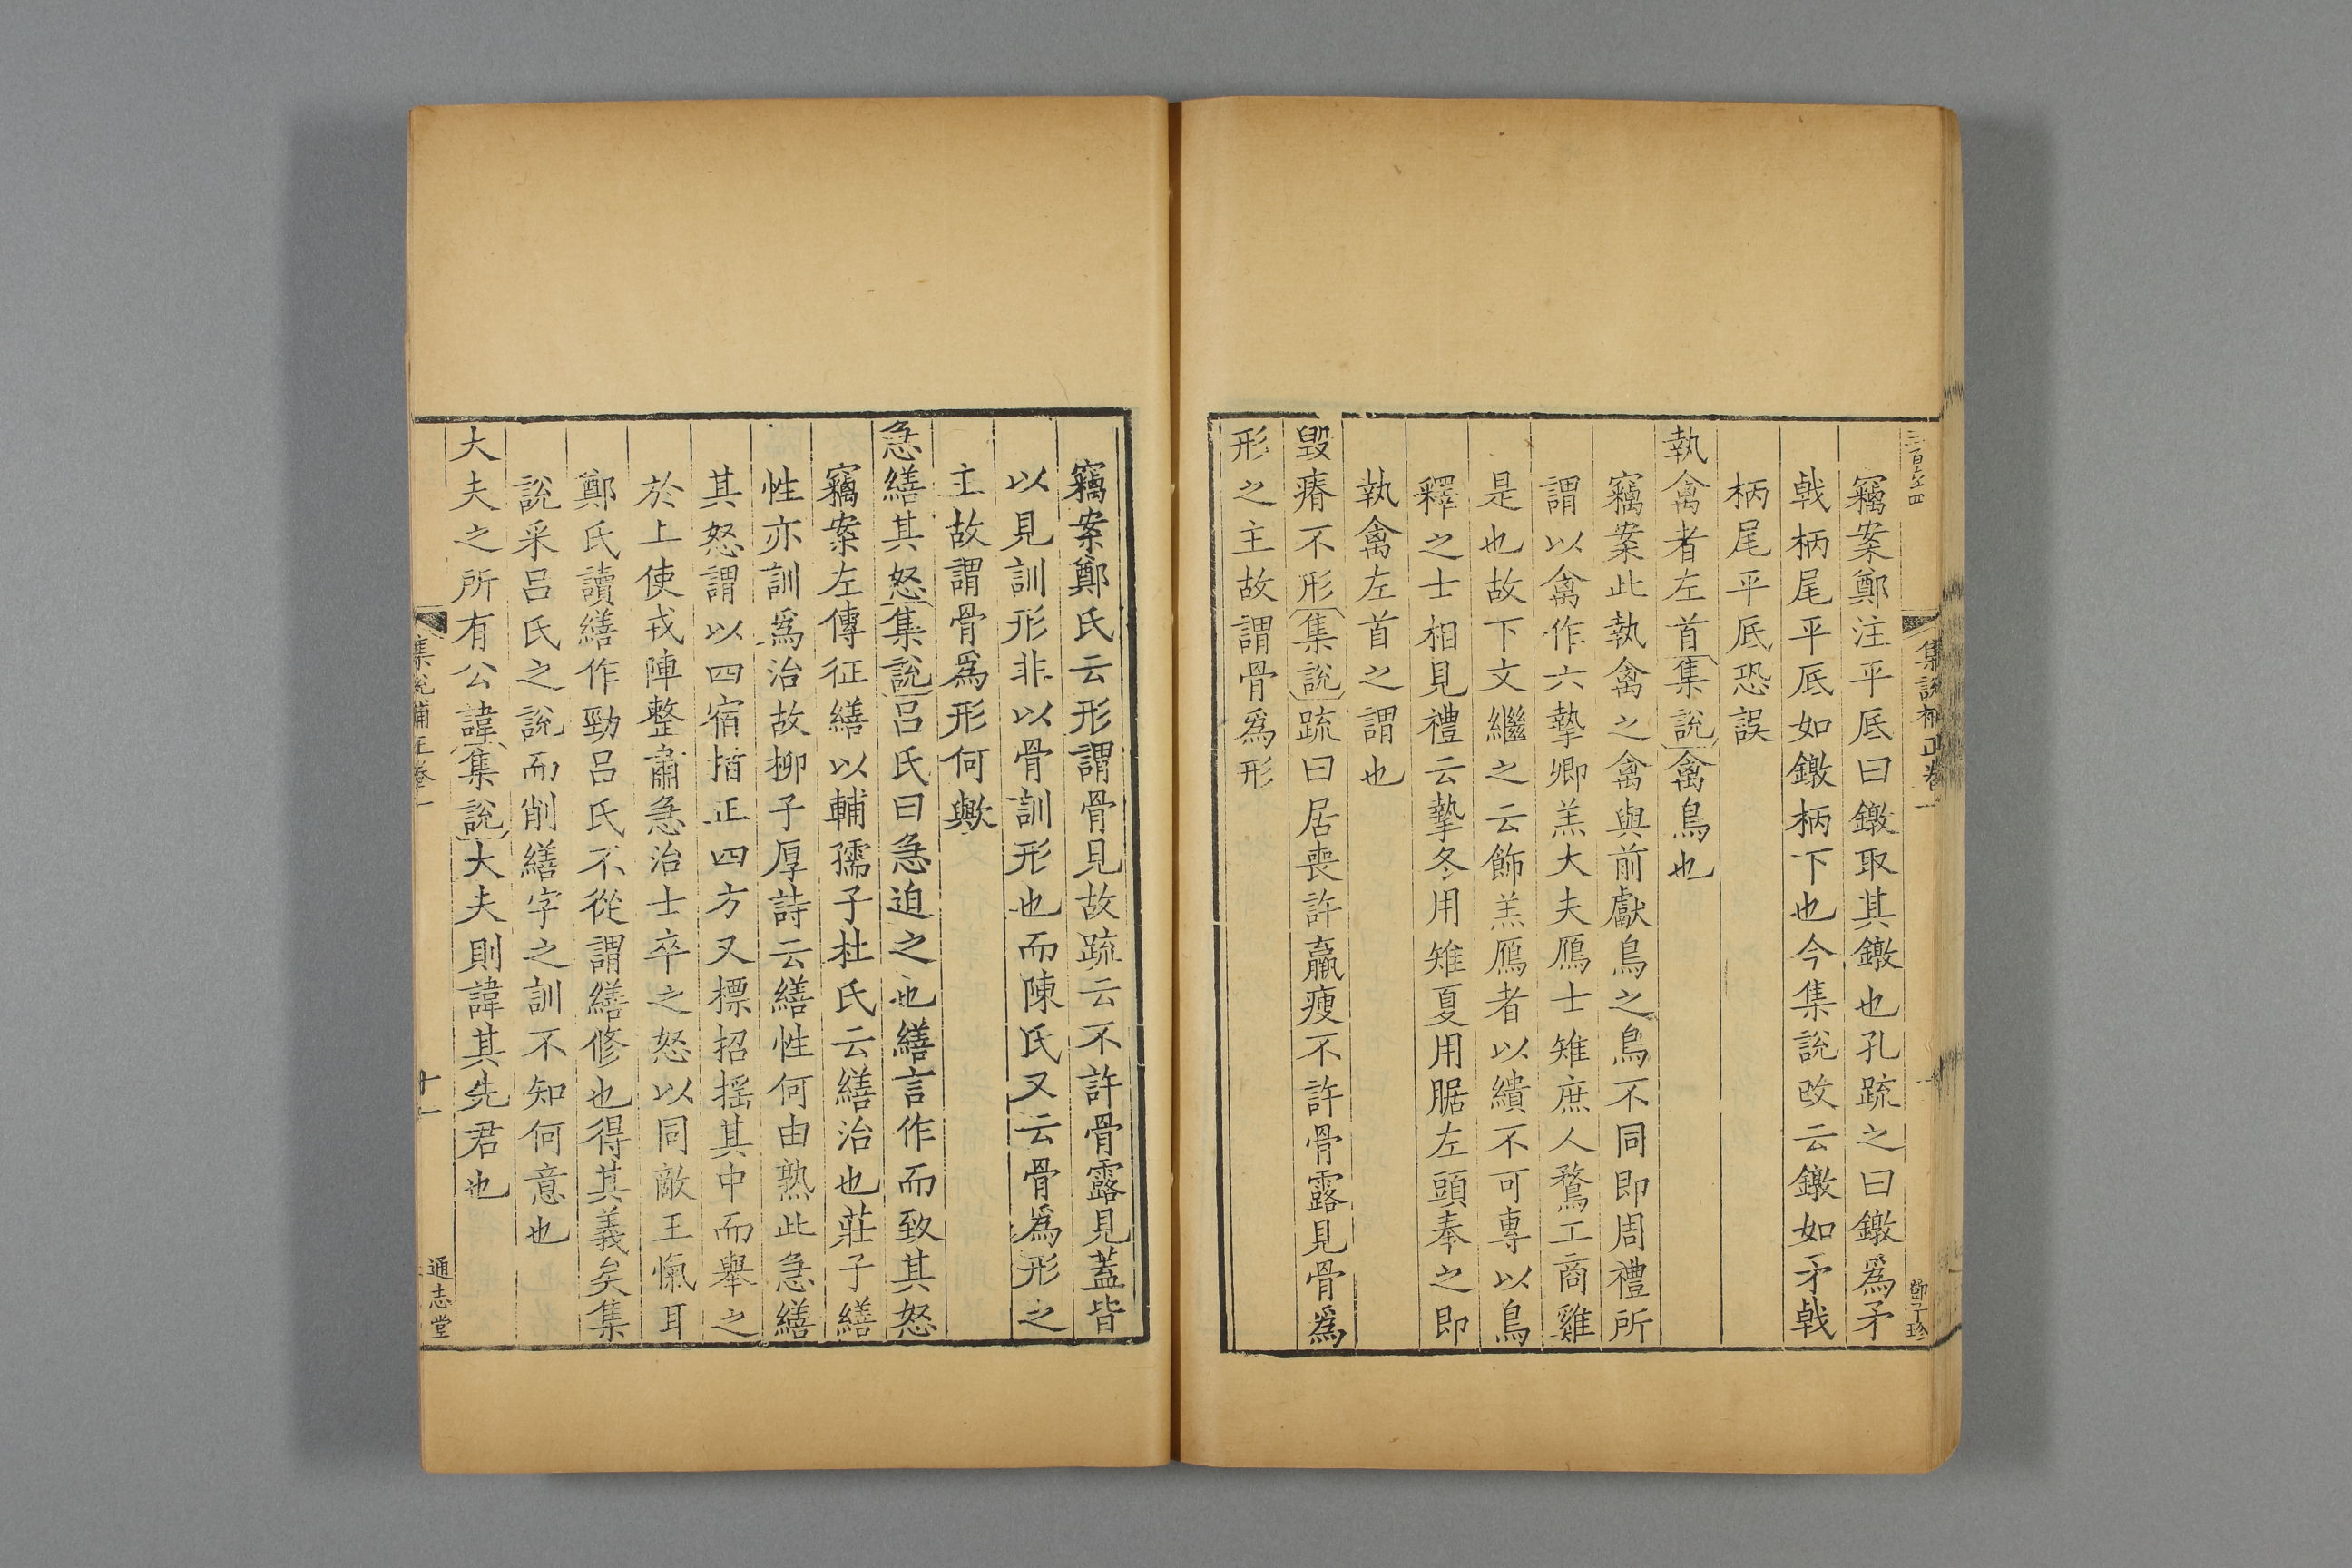 三百六四
集說補正卷一
竊案鄭注平底曰鐓取其鐓也孔疏之曰鐓爲矛
戟柄尾平底如鐓柄下也今集說改云鐓如矛戟
柄尾平底恐誤
執禽者左首集說禽鳥也
竊案此執禽之禽與前獻鳥之鳥不同即周禮所
謂以禽作六摯卿羔大夫鴈士雉庶人鶩工商雞
是也故下文繼之云飾羔鴈者以繢不可專以鳥
釋之士相見禮云摯冬用雉夏用腒左頭奉之即
執禽左首之謂也
毀瘠不形集說疏曰居喪許羸瘦不許骨露見骨爲
形之主故謂骨爲形
竊案鄭氏云形謂骨見故疏云不許骨露見蓋皆
以見訓形非以骨訓形也而陳氏又云骨爲形之
主故謂骨爲形何歟
急繕其怒集說呂氏曰急迫之也繕言作而致其怒
竊案左傳征繕以輔孺子杜氏云繕治也莊子繕
性亦訓爲治故柳子厚詩云繕性何由熟此急繕
其怒謂以四宿指正四方又標招搖其中而舉之
於上使戎陣整肅急治士卒之怒以同敵王愾耳
鄭氏讀繕作勁呂氏不從謂繕修也得其義矣集
說采呂氏之說而削繕字之訓不知何意也
大夫之所有公諱集說大夫則諱其先君也
集說補正卷一
十一
通志堂